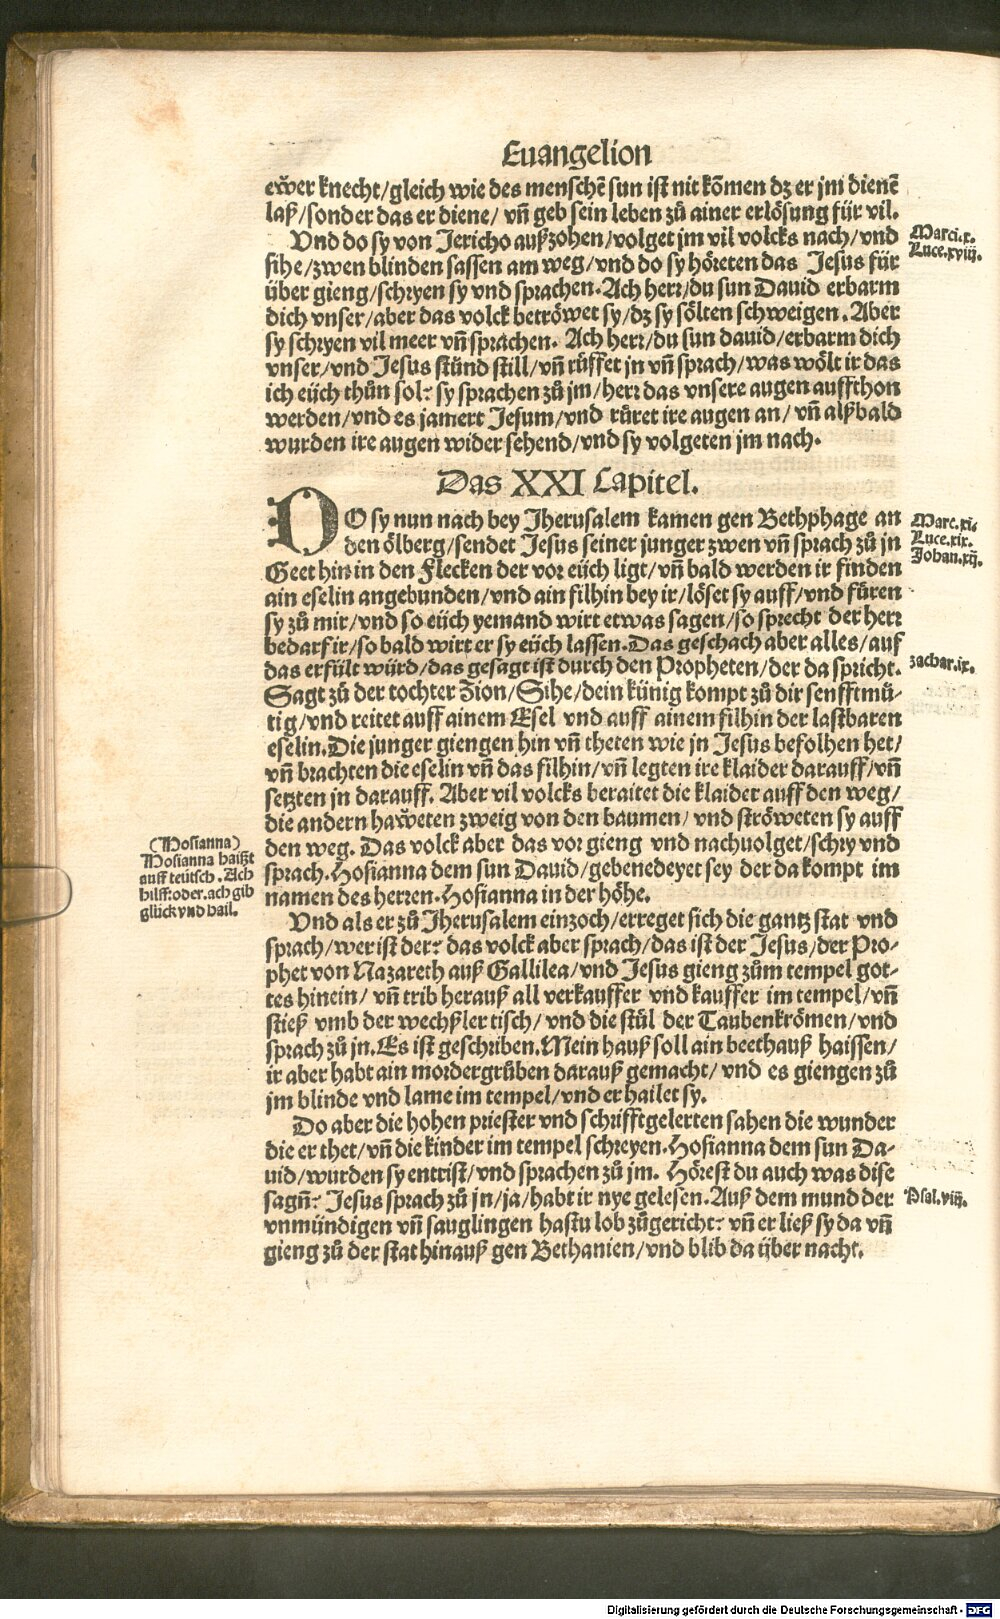 Euangelion
ewer knecht/gleich wie des menschē sun ist nit kōmen dz er jm dienē
laß/sonder das er diene/ vñ geb sein leben zů ainer erlösung für vil.
Vnd do sy von Jericho außzohen/volget jm vil volcks nach/vnd
sihe/zwen blinden sassen am weg/vnd do sy höreten das Jesus für
über gieng/schryen sy vnd sprachen. Ach herr/du sun Dauid erbarm
dich vnser/aber das volck betröwet sy/dz sy sölten schweigen. Aber
sy schryen vil meer vñ sprachen. Ach herr/du sun dauid/erbarm dich
vnser/vnd Jesus stůnd still/vñ růffet jn vñ sprach/was wölt ir das
ich eüch thůn sol? sy sprachen zů jm/herr das vnsere augen auffthon
werden/vnd es jamert Jesum/vnd růret ire augen an/ vñ alßbald
wurden ire augen wider sehend/vnd sy volgeten jm nach.
Marci.x.
Luce.xviij.
Das XXI Capitel.
DO sy nun nach bey Jherusalem kamen gen Bethphage an
den ölberg/sendet Jesus seiner junger zwen vñ sprach zů jn
Geet hin in den Flecken der vor eüch ligt/vñ bald werden ir finden
ain eselin angebunden/vnd ain filhin bey ir/löset sy auff/vnd füren
sy zů mir/vnd so eüch yemand wirt etwas sagen/so sprecht der herr
bedarf ir/so bald wirt er sy eüch lassen. Das geschach aber alles/auf
das erfült würd/das gesagt ist durch den Propheten/der da spricht.
Sagt zů der tochter Zion/Sihe/dein künig kompt zů dir senfftmü-
tig/vnd reitet auff ainem Esel vnd auff ainem filhin der lastbaren
eselin. Die junger giengen hin vñ theten wie jn Jesus befolhen het/
vñ brachten die eselin vñ das filhin/vñ legten ire klaider darauff/vñ
setzten jn darauff. Aber vil volcks beraitet die klaider auff den weg/
die andern haweten zweig von den baumen/ vnd ströweten sy auff
den weg. Das volck aber das vor gieng vnd nachuolget/schry vnd
sprach. Hosianna dem sun Dauid/gebenedeyet sey der da kompt im
namen des herren. Hosianna in der höhe.
Marc.xi.
Luce.xix.
Johan.xij.
zachar.ix.
(Hosianna)
Hosianna haißt
auff teütsch. Ach
hilff: oder. ach gib
glück vnd hail.
Vnd als er zů Jherusalem einzoch/erreget sich die gantz stat vnd
sprach/wer ist der? das volck aber sprach/das ist der Jesus/der Pro-
phet von Nazareth auß Gallilea/vnd Jesus gieng zům tempel got-
tes hinein/ vñ trib herauß all verkauffer vnd kauffer im tempel/vñ
stieß vmb der wechßler tisch/ vnd die stůl der Taubenkrömen/vnd
sprach zů jn. Es ist geschriben. Mein hauß soll ain beethauß haissen/
ir aber habt ain mordergrůben darauß gemacht/ vnd es giengen zů
jm blinde vnd lame im tempel/vnd er hailet sy.
Do aber die hohen priester vnd schrifftgelerten sahen die wunder
die er thet/vñ die kinder im tempel schreyen. Hosianna dem sun Da-
uid/wurden sy entrist/vnd sprachen zů jm. Hörest du auch was dise
sagñ? Jesus sprach zů jn/ja/habt ir nye gelesen. Auß dem mund der
vnmündigen vñ sauglingen hastu lob zůgericht? vñ er ließ sy da vñ
gieng zů der stat hinauß gen Bethanien/vnd blib da über nacht.
Psal.viij.
Digitalisierung gefördert durch die Deutsche Forschungsgemeinschaft - DFG